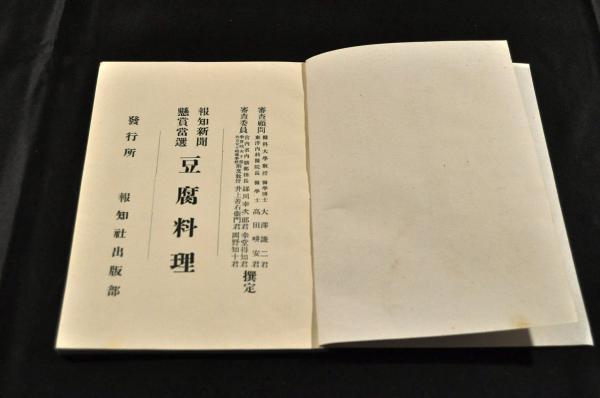 審査顧問
醫科大學教授 醫學博士 大澤謙二君
東洋內科醫院長 醫學士 高田畊安君
審査委員
幸堂得知君
岡野知十君
井上善右衞門君
撰定
報知新聞
懸賞當選
豆腐料理
發行所 報知社出版部